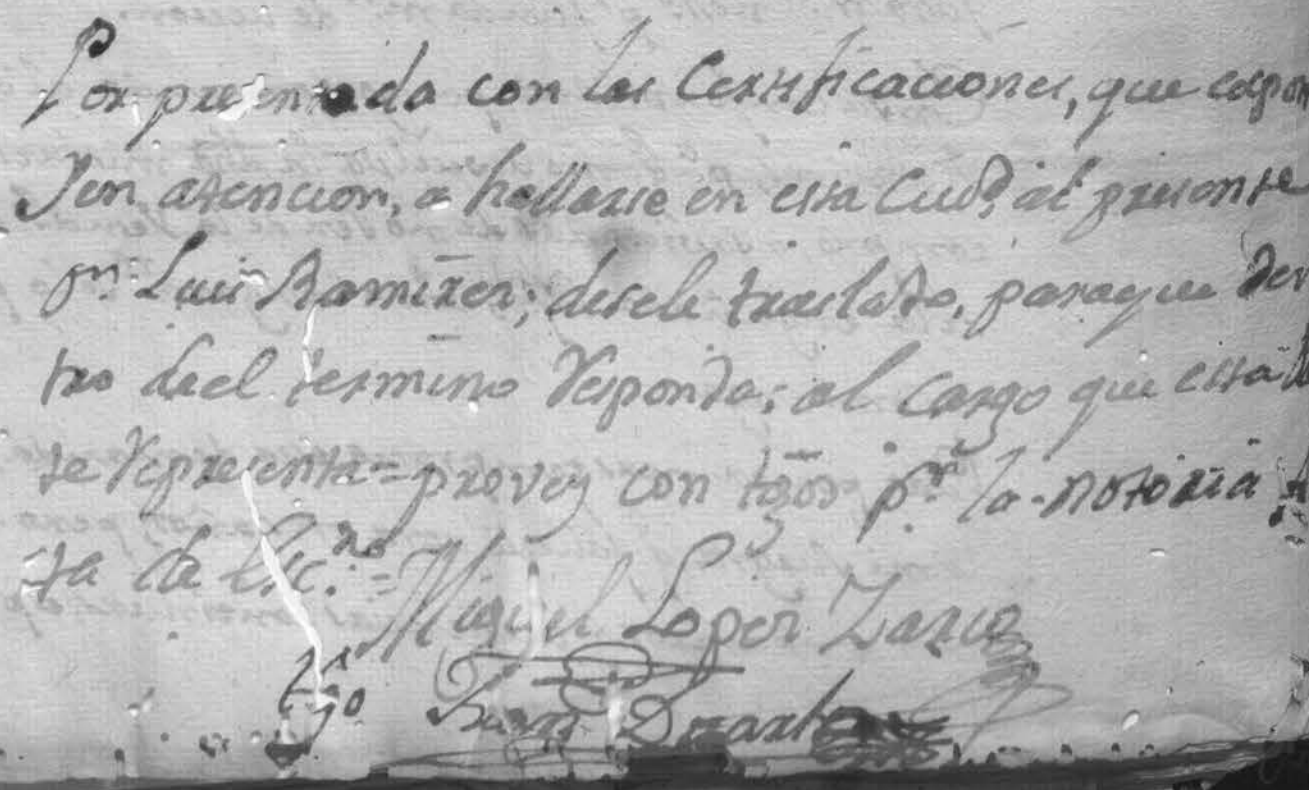 Por presentada con las Certificaciones, que espon
Yen atencion, a hallarse en esta Ciud.d, al presente
Dn. Luis Ramires; desele traslado, paraque den
tro deel termino Responda; al cargo que esta
se Representa = provey con tgos pr la notoria
ta de Esc.no = Miguel Lopez Zarco
tgo Juan Duarte